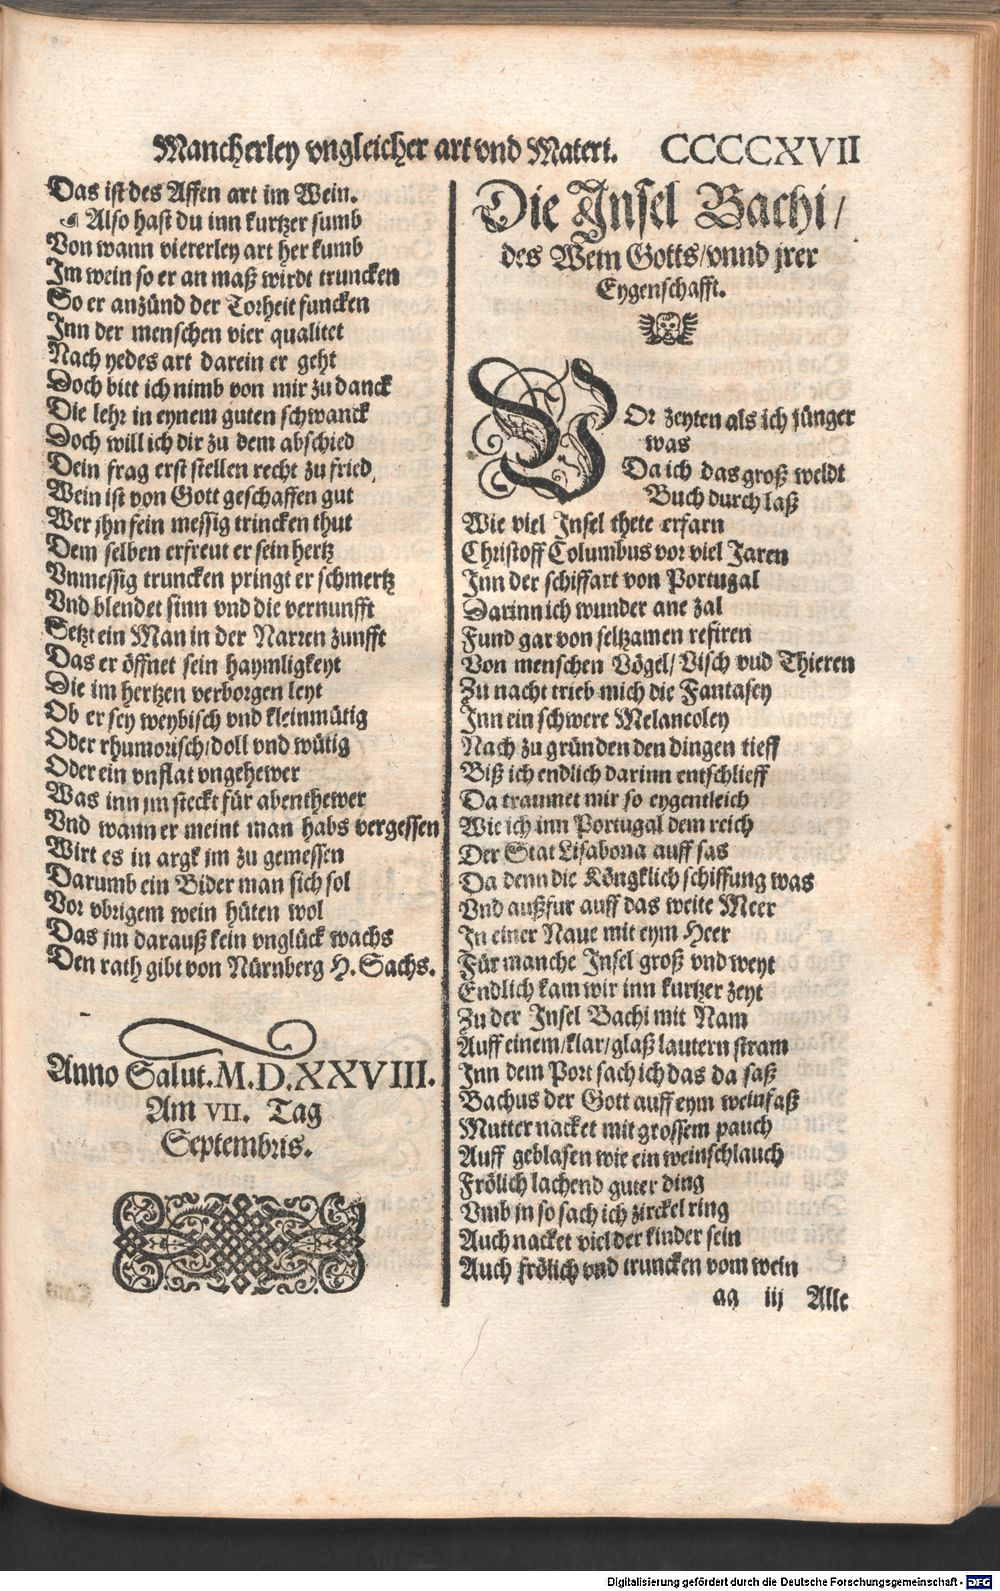 Mancherley vngleicher art vnd Materi. CCCCXVII
Das ist des Affen art im Wein.
Also hast du inn kurtzer sumb
Von wann viererley art her kumb
Im wein so er an maß wirdt truncken
So er anzünd der Torheit funcken
Inn der menschen vier qualitet
Nach yedes art darein er geht
Doch bitt ich nimb von mir zu danck
Die lehr in eynem guten schwanck
Doch will ich dir zu dem abschied
Dein frag erst stellen recht zu fried,
Wein ist von Gott geschaffen gut
Wer jhn fein messig trincken thut
Dem selben erfreut er sein hertz
Vnmessig truncken pringt er schmertz
Vnd blendet sinn vnd die vernunfft
Setzt ein Man in der Narren zunfft
Das er öffnet sein haymligkeyt
Die im hertzen verborgen leyt
Ob er sey weybisch vnd kleinmütig
Oder rhumorisch/doll vnd wütig
Oder ein vnflat vngehewer
Was inn jm steckt für abenthewer
Vnd wann er meint man habs vergessen
Wirt es in argk jm zu gemessen
Darumb ein Bider man sich sol
Vor vbrigem wein hüten wol
Das jm darauß kein vnglück wachs
Den rath gibt von Nürnberg H. Sachs.
Anno Salut. M.D.XXVIII.
Am VII. Tag
Septembris.
Die Insel Bachi/
des Wein Gotts/vnnd jrer
Eygenschafft.
VOr zeyten als ich jünger
was
Da ich das groß weldt
Buch durch laß
Wie viel Insel thete erfarn
Christoff Columbus vor viel Jaren
Inn der schiffart von Portugal
Darinn ich wunder ane zal
Fund gar von seltzamen refiren
Von menschen Vögel/Visch vnd Thieren
Zu nacht trieb mich die Fantasey
Inn ein schwere Melancoley
Nach zu gründen den dingen tieff
Biß ich endlich darinn entschlieff
Da traumet mir so eygentleich
Wie ich inn Portugal dem reich
Der Stat Lisabona auff sas
Da denn die Köngklich schiffung was
Vnd außfur auff das weite Meer
In einer Naue mit eym Heer
Für manche Insel groß vnd weyt
Endlich kam wir inn kurtzer zeyt
Zu der Insel Bachi mit Nam
Auff einem/klar/glaß lautern stram
Inn dem Port sach ich das da saß
Bachus der Gott auff eym weinfaß
Mutter nacket mit grossem pauch
Auff geblasen wie ein weinschlauch
Frölich lachend guter ding
Vmb jn so sach ich zirckel ring
Auch nacket viel der kinder sein
Auch frölich vnd truncken vom wein
aa iij Alle
Digitalisierung gefördert durch die Deutsche Forschungsgemeinschaft - DFG